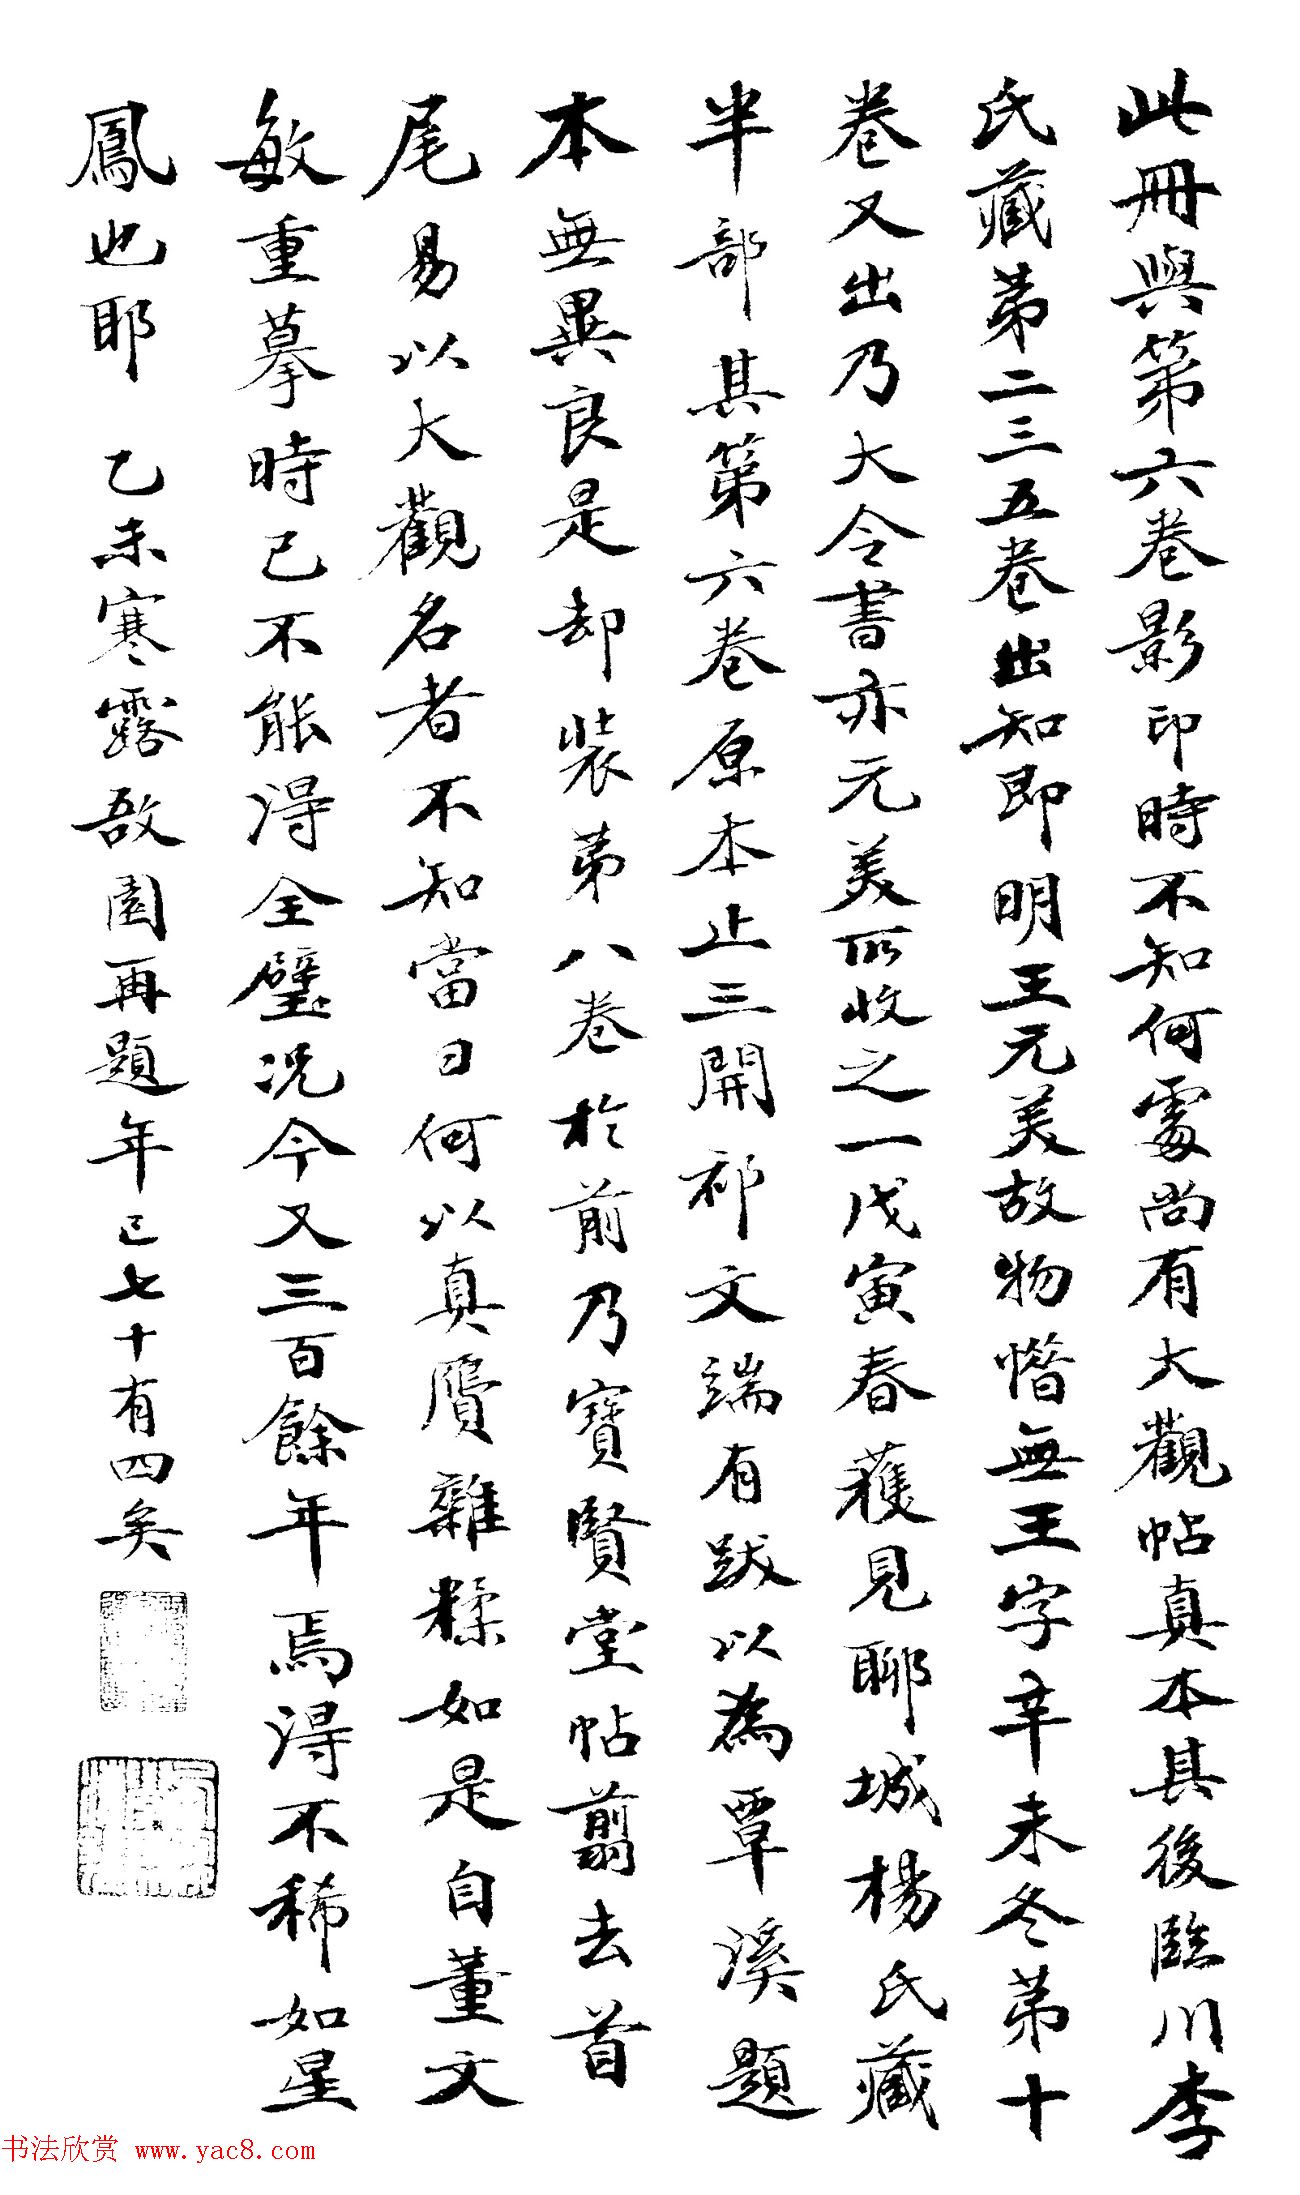 此冊與第六卷影印時不知何處尚有大觀帖真本其後臨川李
氏藏第二三五卷出知即明王元美故物惜無王字辛未冬第十
卷又出乃大令書亦元美所收之一戊寅春獲見聊城楊氏藏
半部其第六卷原本止三開祁文端有跋以為覃溪題
本無異良是却裝第八卷於前乃寶賢堂帖翦去首
尾易以大觀名者不知當日何以真贋雜糅如是自董文
敏重摹時已不能得全璧況今又三百餘年焉得不稀如星
鳳也耶 乙未寒露敔園再題年已七十有四矣
书法欣赏 www.yac8.com